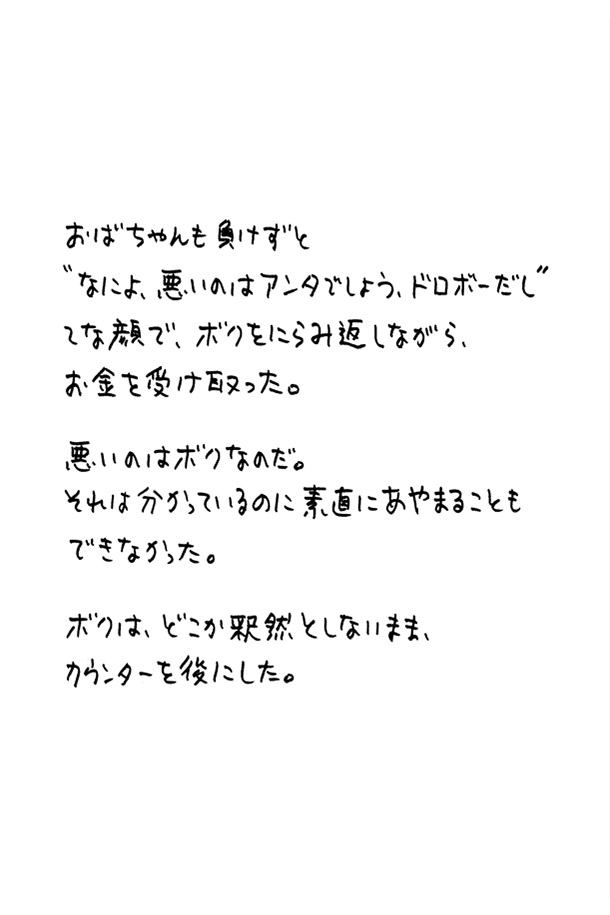 おばちゃんも負けずと
“なによ、悪いのはアンタでしょう、ドロボーだし”
てな顔で、ボクをにらみ返しながら、
お金を受け取った。
悪いのはボクなのだ。
それは分かっているのに素直にあやまることも
できなかった。
ボクは、どこか釈然としないまま、
カウンターを後にした。